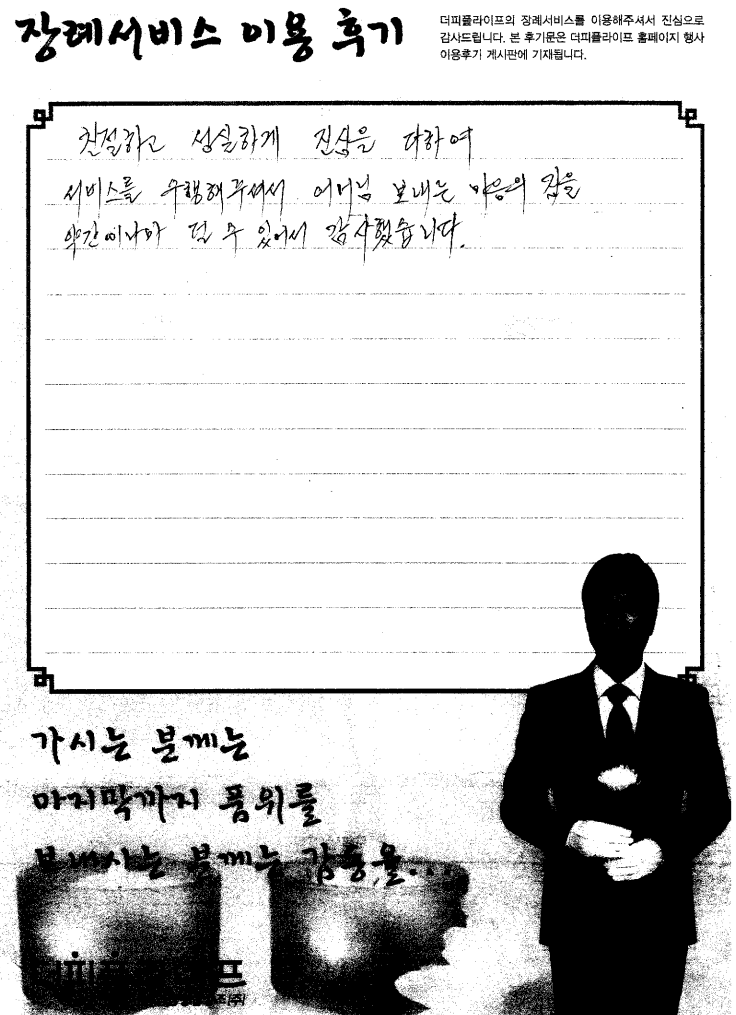 장례서비스 이용 후기
더피플라이프의 장례서비스를 이용해주셔서 진심으로
감사드립니다. 본 후기문은 더피플라이프 홈페이지 행사
이용후기 게시판에 기재됩니다.
친절하고 성실하게 진심을 다하여
서비스를 수행해주셔서 어머님 보내는 마음의 짐을
약간이나마 덜 수 있어서 감사했습니다.
가시는 분께는
마지막까지 품위를
보내시는 분께는 감동을...
더피플라이프